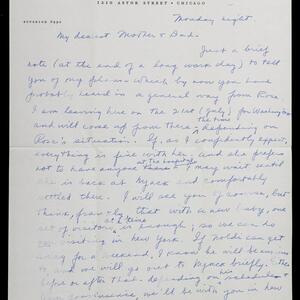 1210 ASTOR STREET • CHICAGO
Monday night.
My dearest Mother & Dad –
Just a brief
note (at the end of a long work day) to tell
you of my plans – which by now you have
probably heard in a general way from Rose.
I am leaving here on the 21st (July) for Washington
and will come up from there – depending on
the time
Rose's situation. If, as I confidently expect,
everything is fine with her, and she prefers
not to have anyone there, I may wait until
at the hospital
she is back at Nyack and comfortably
settled there. I will see you of course, but
think, frankly that with a new baby, one
set of visitors is enough; so we can do
at a time
visiting in New York. If
away for a weekend, I know he will
to, and we will go out to Nyack briefly,
or after that – depending on
convenience, we'll be with you in New